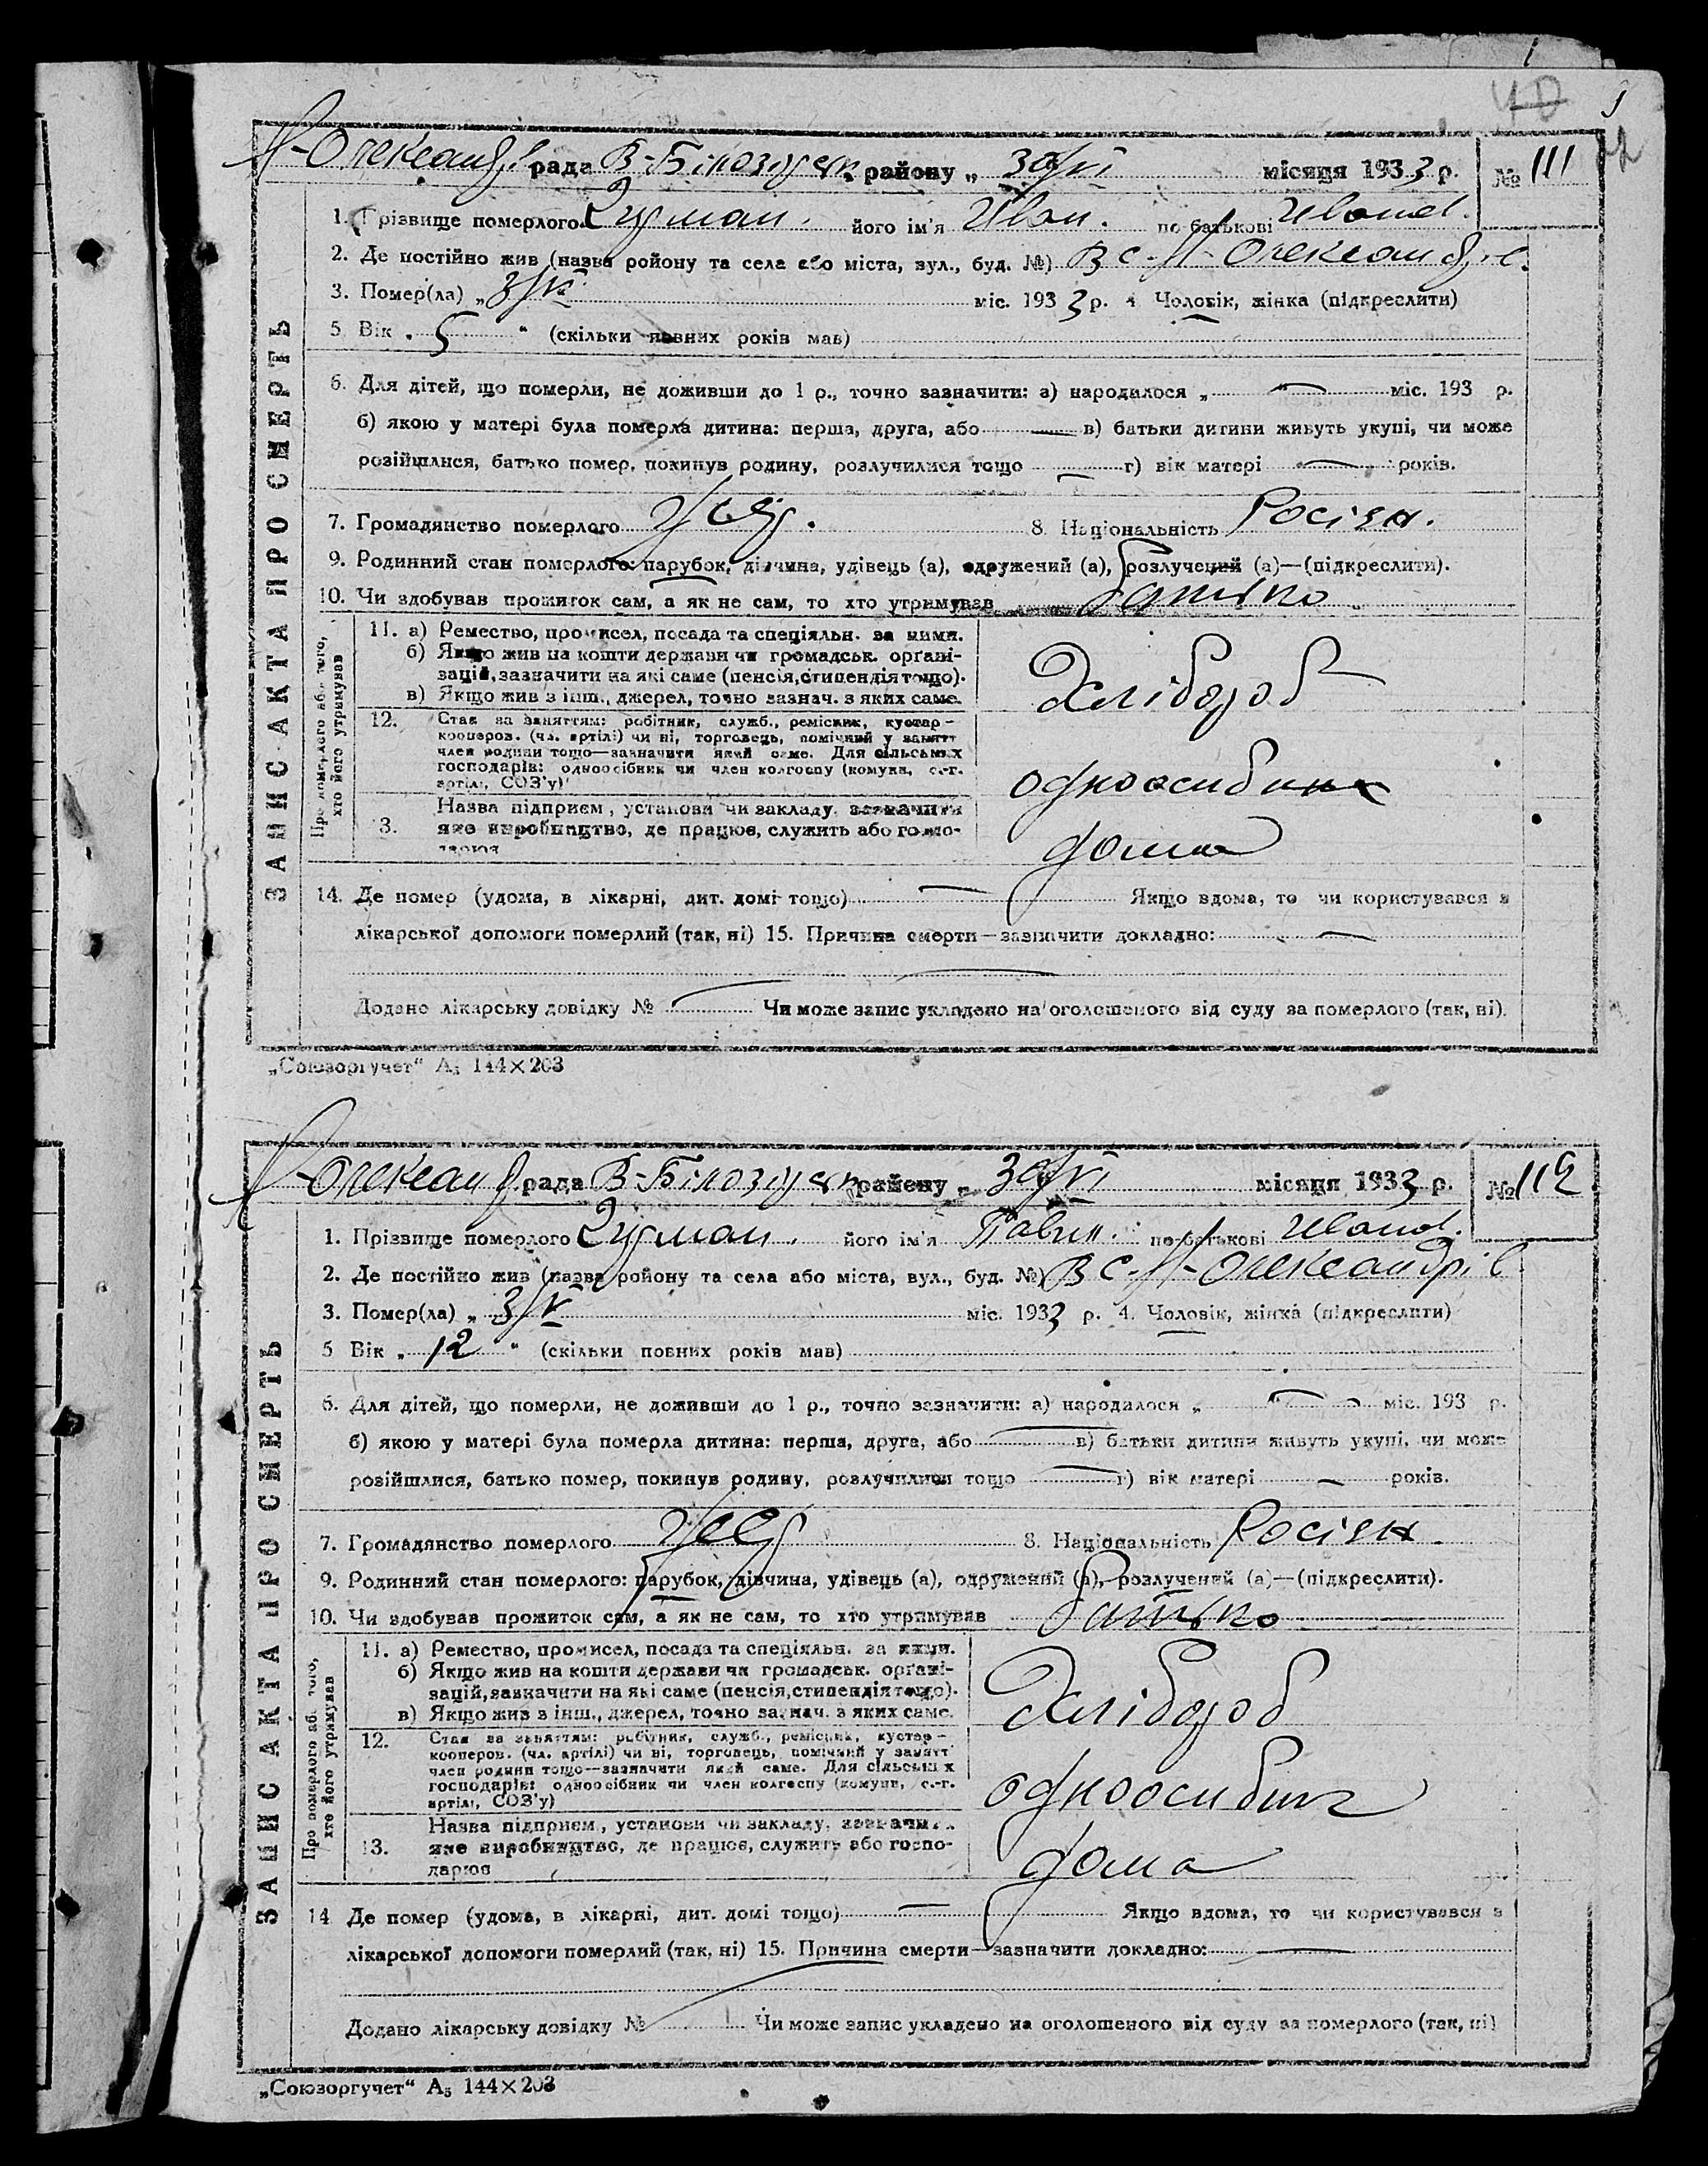 40
Н-Олександр. рада В-Білозерськ. району „ 30/VI місяця 1933 р. № 111
1. Прізвище померлого Чуман. його ім'я Іван. по батькові Іванов.
2. Де постійно жив (назва ройону та села або міста, вул., буд. №) В с. Н-Олександрів.
3. Помер(ла) „ 3/V міс. 1933 р. 4 Чоловік, жінка (підкреслити)
5 Вік „ 5 “ (скільки повних років мав)
6. Для дітей, що померли, не доживши до 1 р., точно зазначити: а) народилося „ “ — міс. 193 р.
б) якою у матері була померла дитина: перша, друга, або — в) батьки дитини живуть укупі, чи може
розійшлися, батько помер, покинув родину, розлучилися тощо — г) вік матері — років.
7. Громадянство померлого 8. Національність Росіян.
9. Родинний стан померлого: парубок, дівчина, удівець (а), одружений (а), розлучений (а)—(підкреслити).
10. Чи здобував прожиток сам, а як не сам, то хто утримував батько
ЗАПИС АКТА ПРО СМЕРТЬ
Про померлого аб. того,
хто його утримував
11. а) Ремество, промисел, посада та спеціяльн. за ними.
б) Якщо жив на кошти держави чи громадськ. органі-
зацій, зазначити на які саме (пенсія, стипендія тощо).
в) Якщо жив з інш., джерел, точно зазнач. з яких саме.
Хлібороб
12. Стан за заняттям: робітник, служб., ремісник, кустар-
кооперов. (чл. артілі) чи ні, торговець, помічний у занятт
член родини тощо—зазначити який саме. Для сільських
господарів: одноосібник чи член колгоспу (комуни, с.-г.
артілі, СОЗ'у)
одноосибник
Назва підприєм, установи чи закладу, зазначити
3. яке виробництво, де працює, служить або госпо-
дарює
дома
14. Де помер (удома, в лікарні, дит. домі тощо) — Якщо вдома, то чи користувався з
лікарської допомоги померлий (так, ні) 15. Причина смерти—зазначити докладно: —
Додано лікарську довідку № Чи може запис укладено на оголошеного від суду за померлого (так, ні).
„Союзоргучет“ А₅ 144×203
Н-Олександр. рада В-Білозерськ. району „ 30/VI місяця 1933 р. № 112
1. Прізвище померлого Чуман. його ім'я Павли. по батькові Іванов.
2. Де постійно жив (назва ройону та села або міста, вул., буд. №) В с. Н-Олександрів.
3. Помер(ла) „ 3/V міс. 1933 р. 4. Чоловік, жінка (підкреслити)
5 Вік „ 12 “ (скільки повних років мав)
6. Для дітей, що померли, не доживши до 1 р., точно зазначити: а) народилося „ “ — міс. 193 р.
б) якою у матері була померла дитина: перша, друга, або — в) батьки дитини живуть укупі, чи може
розійшлися, батько помер, покинув родину, розлучилися тощо — г) вік матері — років.
7. Громадянство померлого 8. Національність Росіян
9. Родинний стан померлого: парубок, дівчина, удівець (а), одружений (а), розлучений (а)—(підкреслити).
10. Чи здобував прожиток сам, а як не сам, то хто утримував батько
ЗАПИС АКТА ПРО СМЕРТЬ
Про померлого аб. того,
хто його утримував
11. а) Ремество, промисел, посада та спеціяльн. за ними.
б) Якщо жив на кошти держави чи громадськ. органі-
зацій, зазначити на які саме (пенсія, стипендія тощо).
в) Якщо жив з інш., джерел, точно зазнач. з яких саме.
Хлібороб
12. Стан за заняттям: робітник, служб., ремісник, кустар-
кооперов. (чл. артілі) чи ні, торговець, помічний у занятт
член родини тощо—зазначити який саме. Для сільських
господарів: одноосібник чи член колгоспу (комуни, с.-г.
артілі, СОЗ'у)
одноосибник
Назва підприєм, установи чи закладу, зазначити
13. яке виробництво, де працює, служить або госпо-
дарює
дома
14 Де помер (удома, в лікарні, дит. домі тощо) — Якщо вдома, то чи користувався з
лікарської допомоги померлий (так, ні) 15. Причина смерти—зазначити докладно: —
Додано лікарську довідку № Чи може запис укладено на оголошеного від суду за померлого (так, ні)
„Союзоргучет“ А₅ 144×203